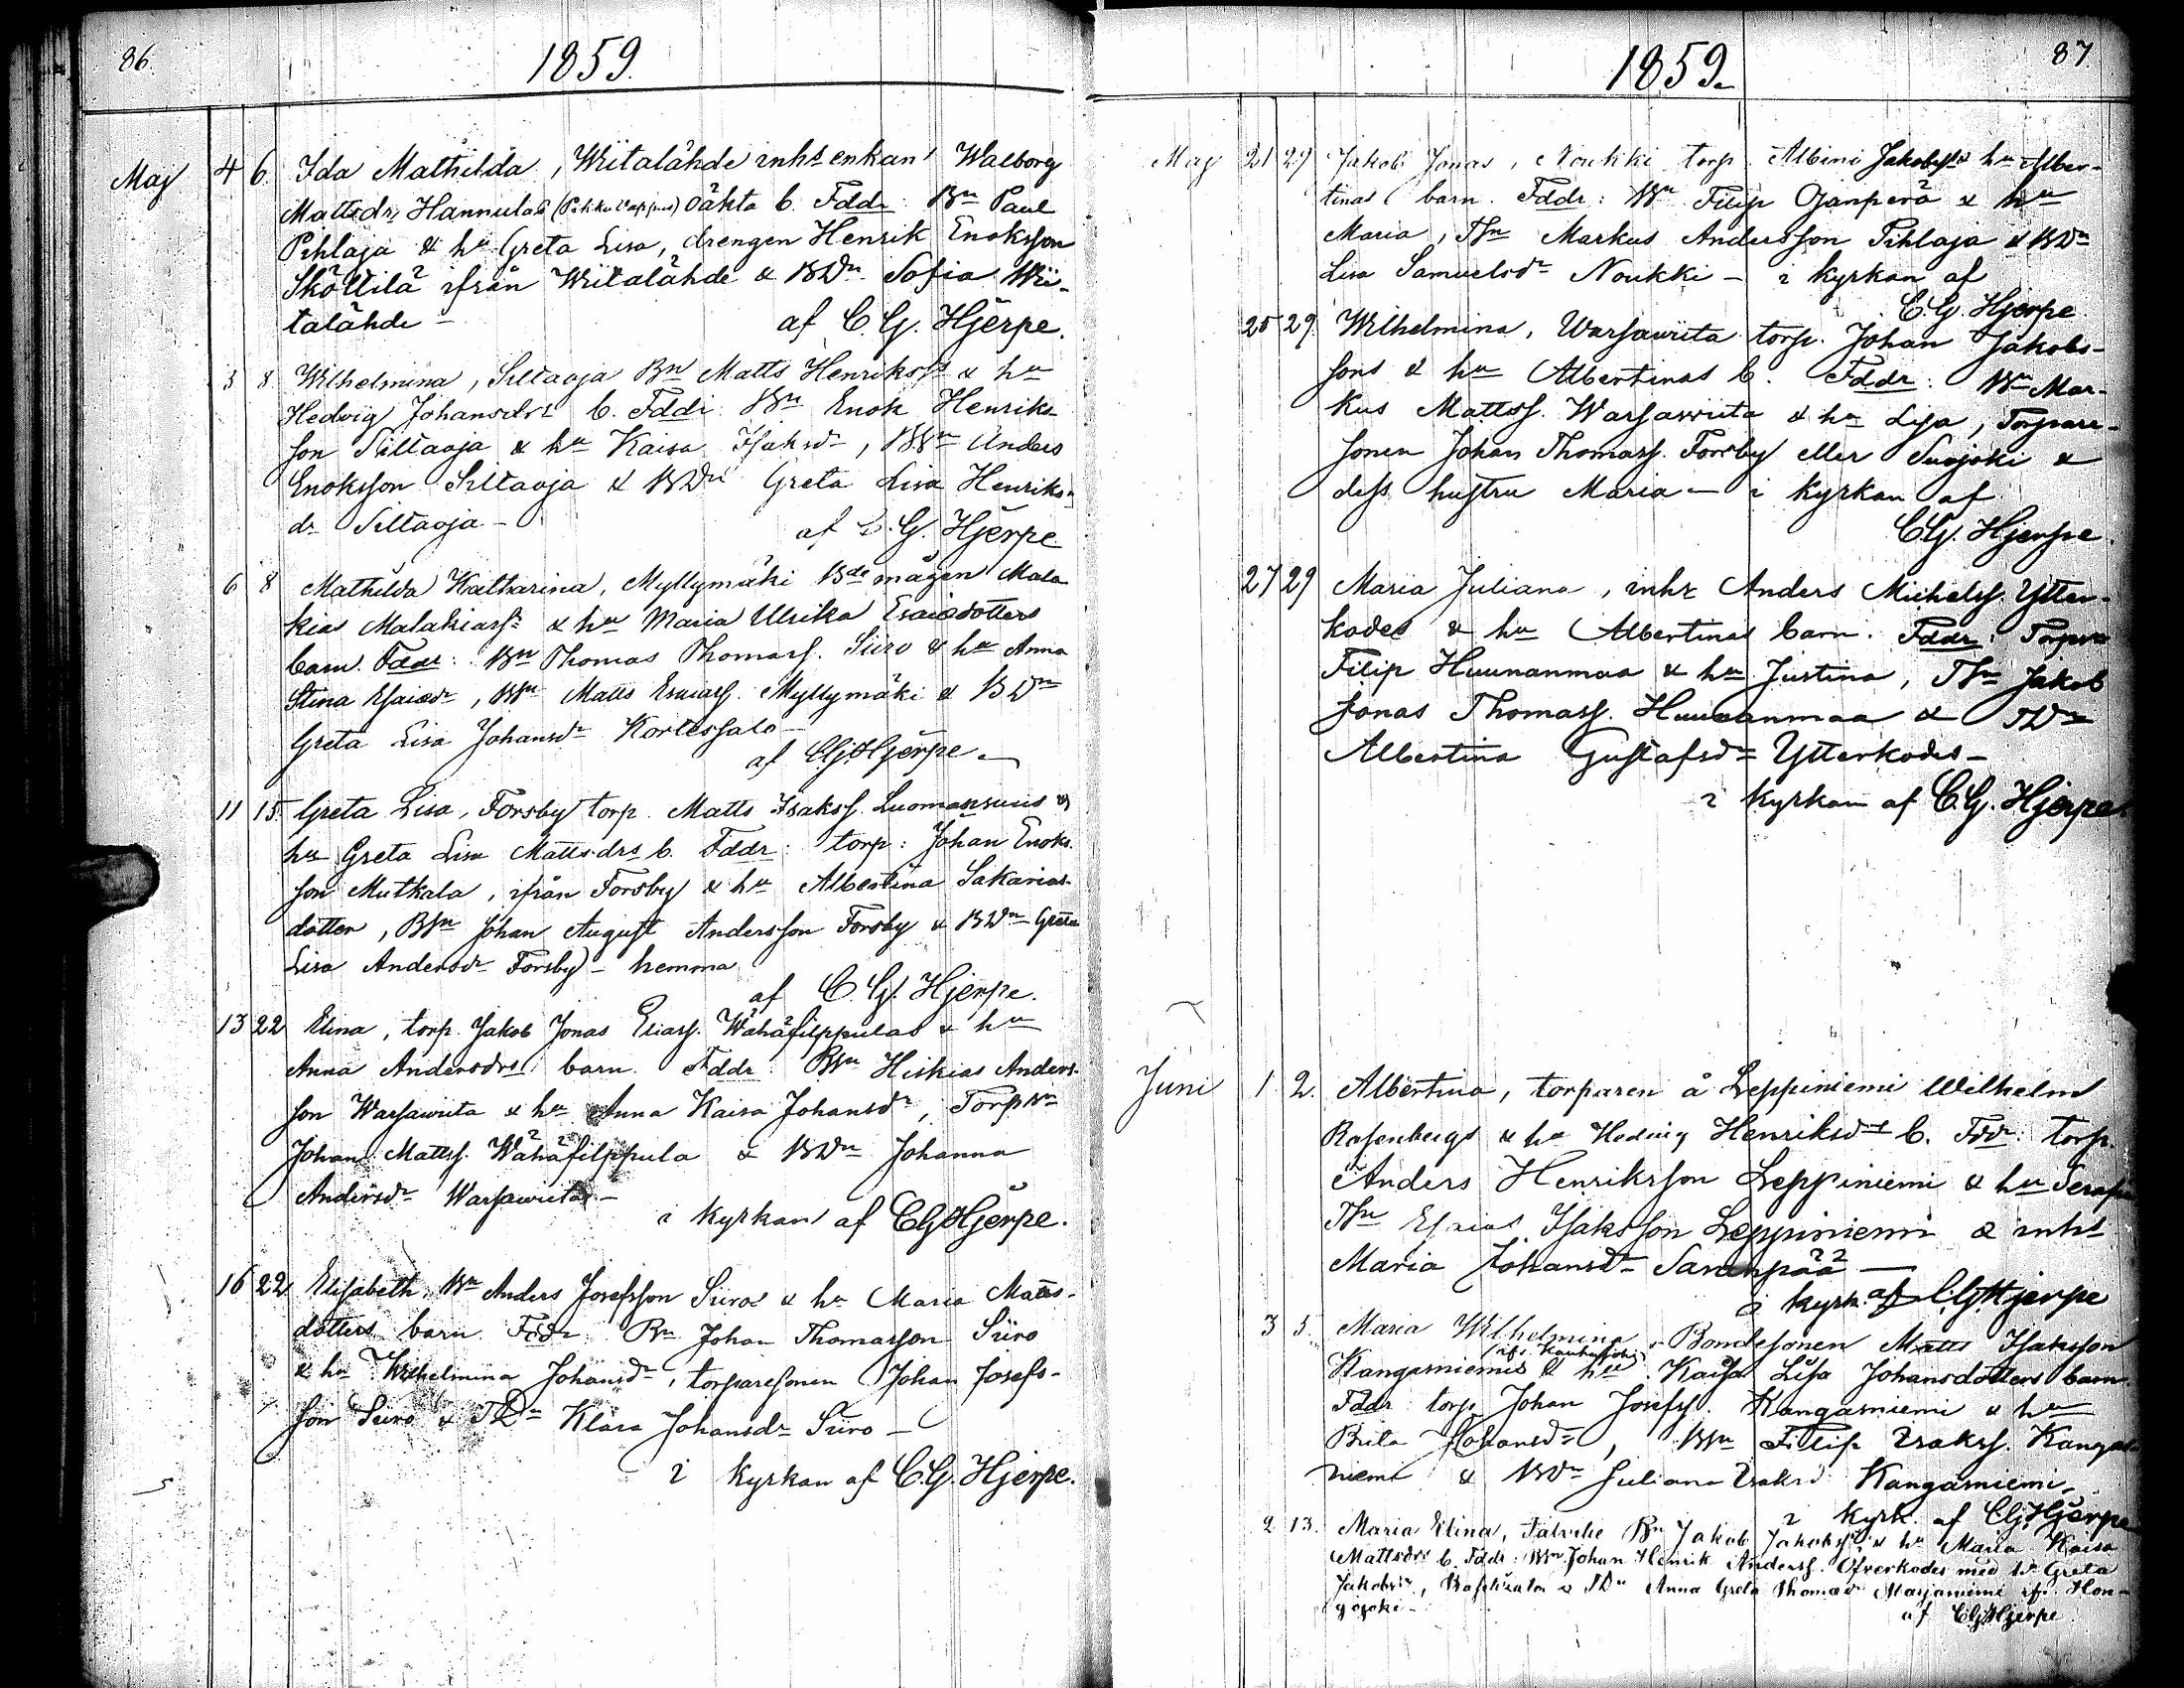 86.
1859.
Maj 4 6. Ida Mathilda, Wiitalähde inhs enkan Walborg
Mattsdrs Hannulas oäkta b. Fddr: Bn Paul
Pihlaja & hu Greta Lisa, drengen Henrik Enoksson
Sköttilä ifrån Wiitalähde & BDn Sofia Wii-
talähde –
af C. G. Hjerpe.
3 8 Wilhelmina, Siltaoja Bn Matts Henrikss & hu
Hedvig Johansdrs b. Fddr Bn Enok Henriks-
son Siltaoja & hu Kaisa Isaksdr, BSn Anders
Enoksson Siltaoja & BDn Greta Lisa Henriks-
dr Siltaoja –
af C. G. Hjerpe.
6 8 Mathilda Katharina, Myllymäki Bde mågen Mala-
kias Malakiass & hu Maria Ulrika Esaiædotters
barn. Fddr: Bn Thomas Thomass. Siiro & hu Anna
Stina Esaiædr, BSn Matts Esaiass. Myllymäki & BDn
Greta Lisa Johansdr Kortessalo –
af CGHjerpe –
11 15. Greta Lisa, Forsby torp. Matts Isakss. Luomansuus &
hu Greta Lisa Mattsdrs b. Fddr: torp: Johan Enoks-
son Mutkala, ifrån Forsby & hu Albertina Sakarias-
dotter, BSn Johan August Andersson Forsby & BDn Greta
Lisa Andersdr Forsby – hemma
af C. G. Hjerpe.
13 22 Elina, torp. Jakob Jonas Eliass. Wähäfilppulas & hu
Anna Andersdrs barn. Fddr: BSn Hiskias Anders-
son Warsawiita & hu Anna Kaisa Johansdr, TorpSn
Johan Mattss. Wähäfilppula & BDn Johanna
Andersdr Warsawiita –
i kyrkan af CGHjerpe.
16 22 Elisabeth, Bn Anders Josefsson Siiros & hu Maria Matts-
dotters barn. Fddr Bn Johan Thomasson Siiro
& hu Wilhelmina Johansdr, torparesonen Johan Josefs-
son Siiro & TDn Klara Johansdr Siiro –
i kyrkan af C. G. Hjerpe.
87.
1859.
Maj 21 29 Jakob Jonas, Noukki torp. Albini Jakobss & hu Alber-
tinas barn. Fddr: Bn Filip Ojanperä & hu
Maria, TSn Markus Andersson Pihlaja & BDn
Lisa Samuelsdr Noukki – i kyrkan af
C. G. Hjerpe
25 29. Wilhelmina, Warsawiita torp. Johan Jakobs-
sons & hu Albertinas b. Fddr: BSn Mar-
kus Mattss. Warsawiita & hu Lisa, Torpare-
sonen Johan Thomass. Forsby eller Suojoki &
dess hustru Maria – i kyrkan af
CG. Hjerpe.
27 29 Maria Juliana, inhs Anders Michelss. Ytter-
kodes & hu Albertinas barn. Fddr: Torparen
Filip Huunanmaa & hu Justina, TSn Jakob
Jonas Thomass. Huunanmaa & TDn
Albertina Gustafsdr Ytterkodes –
i kyrkan af C. G. Hjerpe.
Juni 1. 2. Albertina, torparen å Leppiniemi Wilhelm
Rosenbergs & hu Hedvig Henriksdrs b. Fdr: torp.
Anders Henriksson Leppiniemi & hu Serafia
TSn Esaias Isaksson Leppiniemi & inhs
Maria Johansdr Saranpää –
i kyrk. af CGHjerpe
3 5. Maria Wilhelmina, Bondesonen Matts Isaksson
Kangasniemis & hu Kaisa Lisa Johansdotters barn.
Fddr torp Johan Josefss. Kangasniemi & hu
Brita Johansdr, BSn Filip Isakss. Kangas-
niemi & BDn Juliana Isaksd Kangasniemi.
i kyrk. af CG. Hjerpe
2 13. Maria Elina, Talvitie Bn Jakob Jakobss & hu Maria Kaisa
Mattsdrs b. Fddr: BSn Johan Henrik Anderss. Öfverkodes med hu Greta
Jakobsdr, & TDn Anna Greta Thomædr Marjaniemi ifr. Hon-
gajoki –
af CGHjerpe